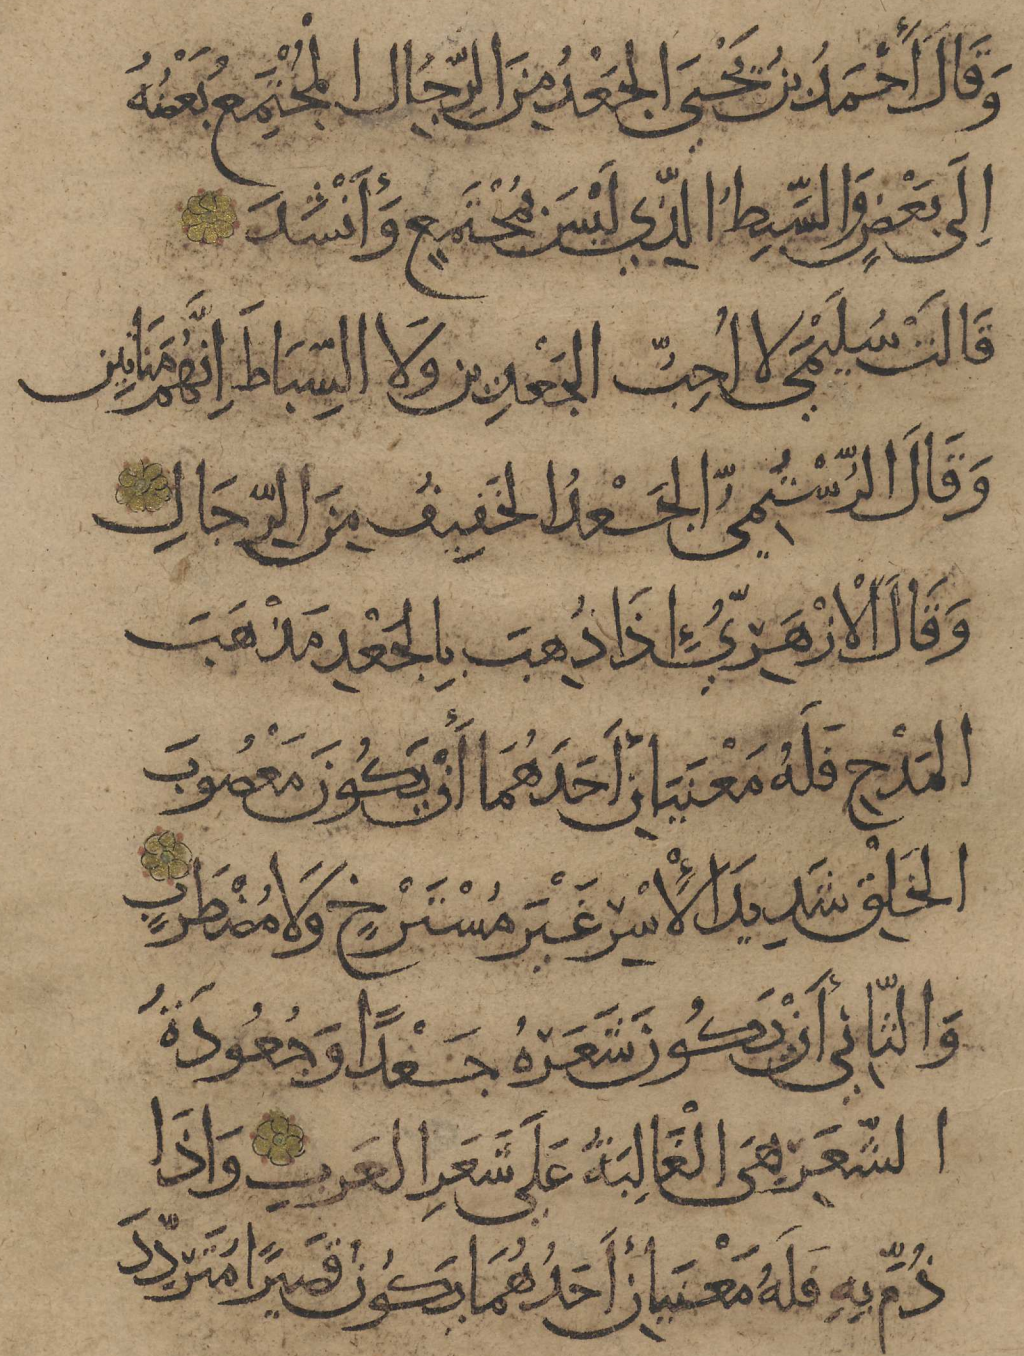 وَقَالَ أَحْمَدُ بنُ يَحْيَى الجَعْدُ مِنَ الرِّجَالِ المُجْتَمِعُ بَعْضُهُ
اِلَى بَعْضٍ وَالسَّبِطُ الَّذِي لَيْسَ بِمُجْتَمِعٍ وَأَنْشَدَ
قَالَتْ سُلَيْمَى لَا اُحِبُّ الجَعْدِين وَلَا السِّبَاطَ اِنَّهُم مَنَاتِين
وَقَالَ الرُّسْتُمِيُّ الجَعْدُ الخَفِيفُ مِنَ الرِّجَالِ
وَقَالَ الْازْهَرِيُّ إِذَا ذُهِبَ بِالجَعْدِ مَذْهَبَ
المَدْحِ فَلَهُ مَعْنَيَانِ أَحَدُهُمَا أَنْ يَكُونَ مَعْصُوبَ
الخَلْقِ شَدِيدَ الْأَسْرِ غَيْرَ مُسْتَرْخٍ وَلَا مُضْطَرِبٍ
وَالثَّانِي أَنْ يَكُونَ شَعَرهُ جَعْدًا وَجُعُودَةُ
الشَّعَرِ هِيَ الْغَالِبَةُ عَلَى شَعَرِ العَرَبِ وَاذَا
ذُمَّ بِهِ فَلَهُ مَعْنَيَانِ أَحَدُهُمَا يَكُونُ قَصِيرًا مُتَرَدِّدَ